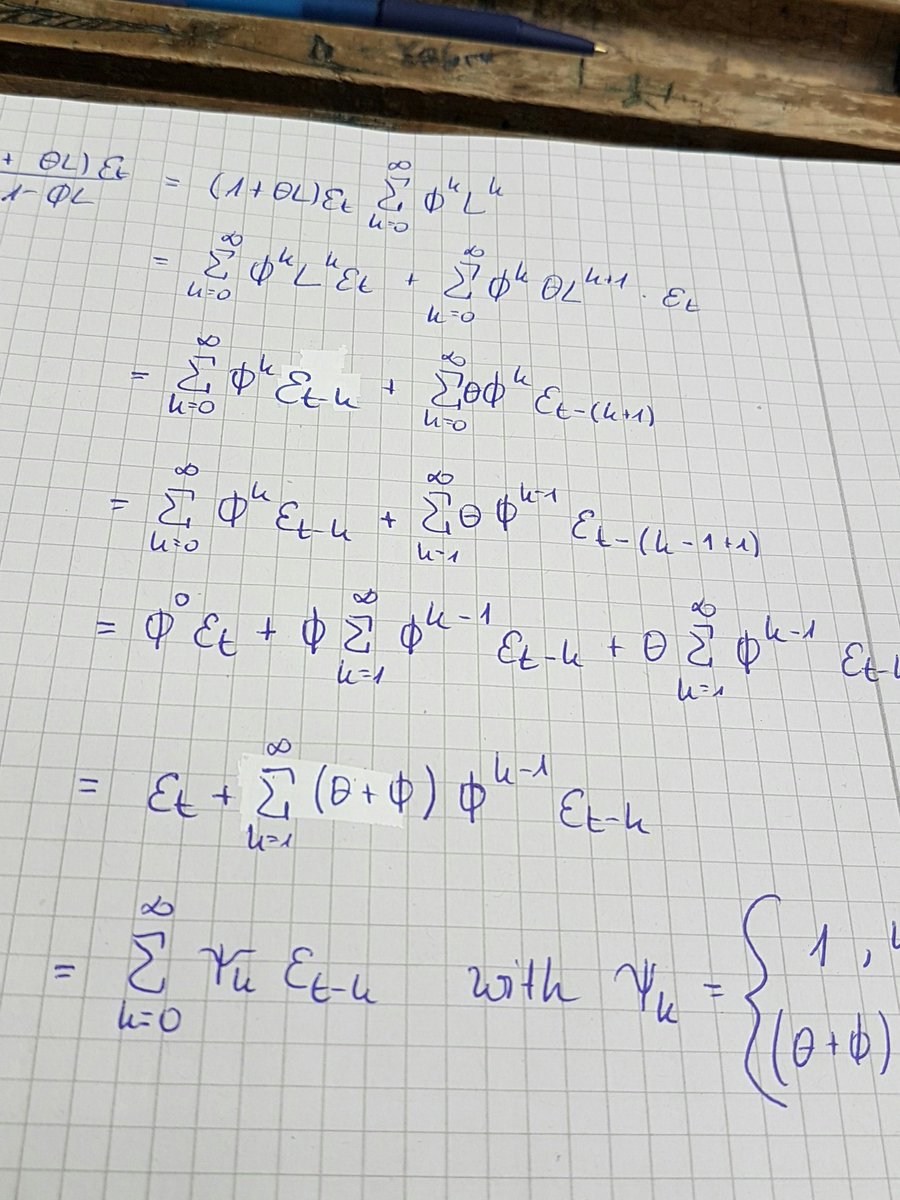 + θL)εt / 1-ΦL = (1+θL)εt ∞Σk=0 Φ^k L^k
= ∞Σk=0 Φ^k L^k εt + ∞Σk=0 Φ^k θL^k+1 · εt
= ∞Σk=0 Φ^k εt-k + ∞Σk=0 θΦ^k εt-(k+1)
= ∞Σk=0 Φ^k εt-k + ∞Σk=1 θΦ^k-1 εt-(k-1+1)
= Φ^0 εt + Φ ∞Σk=1 Φ^k-1 εt-k + θ ∞Σk=1 Φ^k-1 εt-k
= εt + ∞Σk=1 (θ+Φ) Φ^k-1 εt-k
= ∞Σk=0 Ψk εt-k with Ψk = { 1 ,
(θ+Φ)